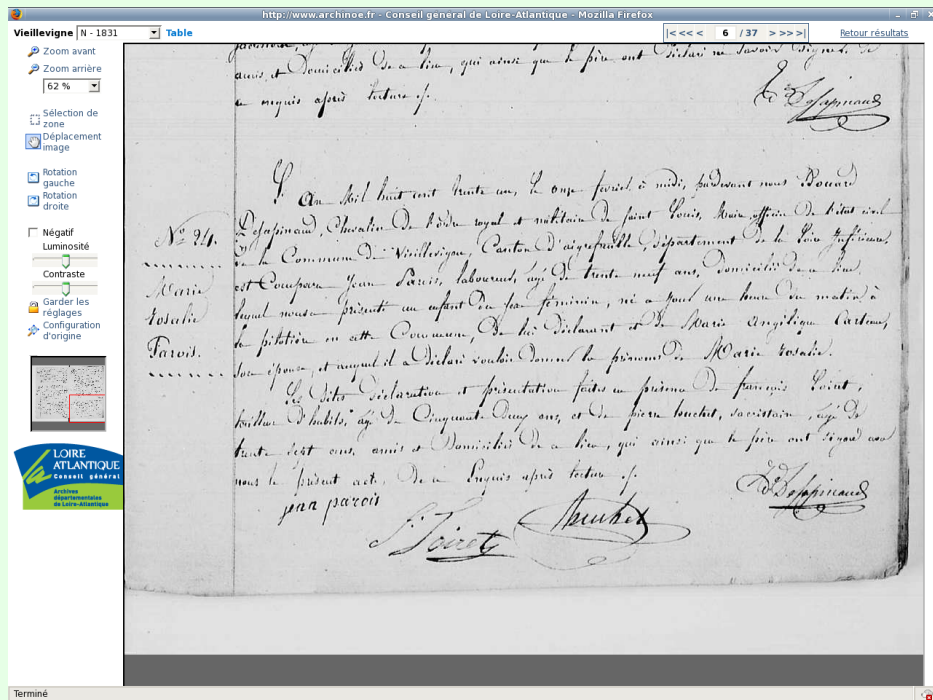 http://www.archinoe.fr - Conseil general de Loire-Atlantique - Mozilla Firefox
Vieillevigne N - 1831 Table
|< << < 6 / 37 > >> >|
Retour résultats
Zoom avant
Zoom arrière
62 %
Sélection de
zone
Déplacement
image
Rotation
gauche
Rotation
droite
Négatif
Luminosité
Contraste
Garder les
réglages
Configuration
d'origine
LOIRE
ATLANTIQUE
Conseil général
Archives
départementales
de Loire-Atlantique
amis et Domiciliés de ce lieu, qui ainsi que le père ont déclaré ne savoir signer de
ce requis après lecture ./.
De Lespinaud
N° 24.
Marie
rosalie
Parois.
L'An Mil huit cent trente un, le onze février à midi, pardevant nous Edouard
Chevalier De l'ordre royal et militaire de saint Louis, Maire officier De l'état civil
De la Commune de Vieillevigne, Canton D'aigrefeuille, Département de la Loire Inférieure,
est Comparu Jean Parois, laboureur, âgé de trente neuf ans, Domicilié De ce lieu,
lequel nous a présenté un enfant Du sexe féminin, né ce jour une heure Du matin, à
la en cette Commune, De lui Déclarant et De Marie Angélique
son épouse, et auquel il a déclaré vouloir Donner les prénoms De Marie rosalie.
Les Dites Déclaration et présentation faites en présence De françois Loiret,
tailleur d'habits, âgé De Cinquante Deux ans, et De pierre touchet, sacristain, âgé De
trente sept ans, amis et Domiciliés De ce lieu, qui ainsi que le père ont signé avec
nous le présent acte, De ce requis après lecture ./.
jean parois
f. Loiret
touchet